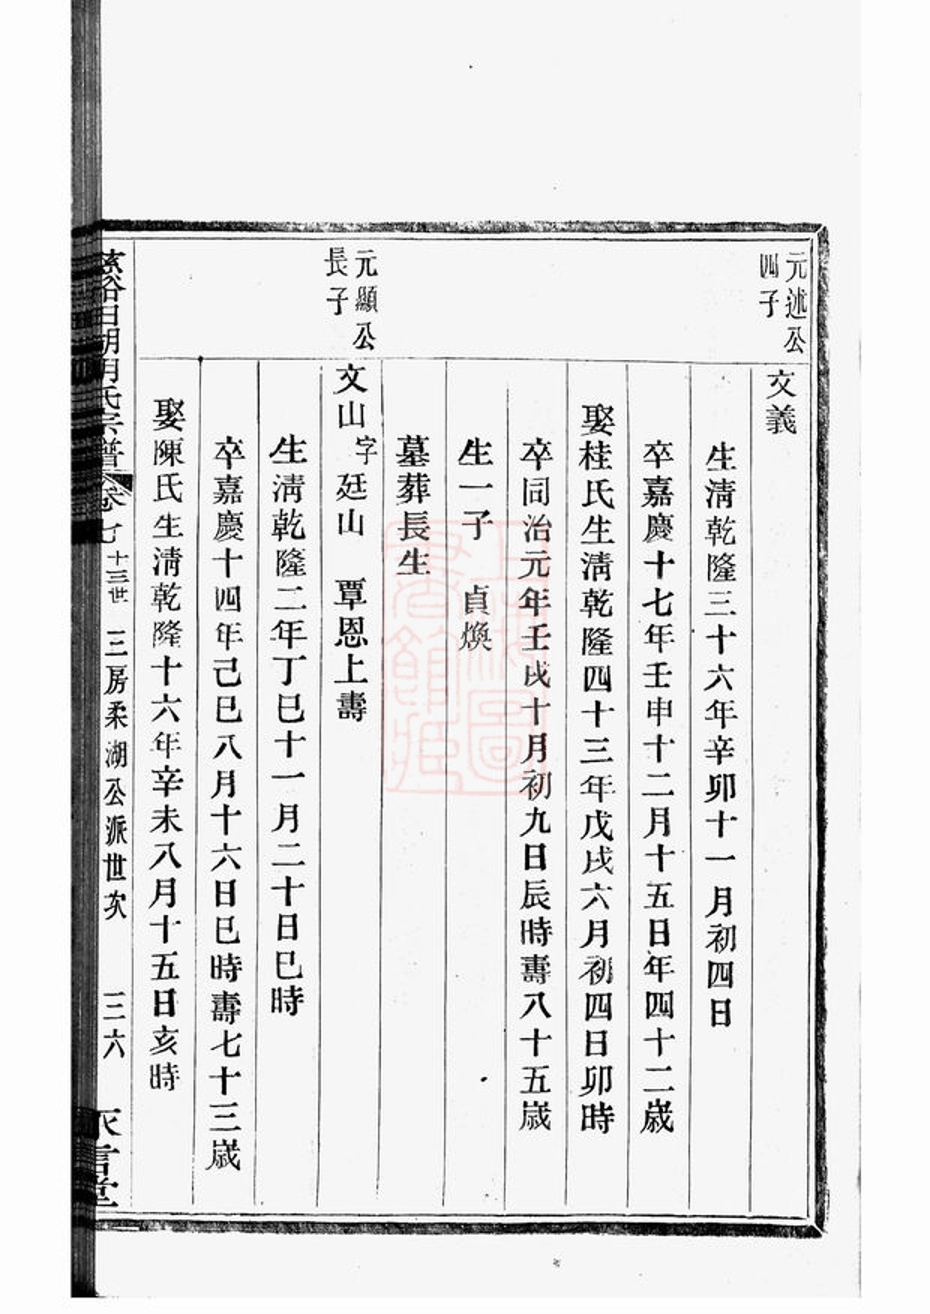 元述公
四子
文義
生清乾隆三十六年辛卯十一月初四日
卒嘉慶十七年壬申十二月十五日年四十二歲
娶桂氏生清乾隆四十三年戊戌六月初四日卯時
卒同治元年壬戌十月初九日辰時壽八十五歲
生一子 貞煥
墓葬長生
元顯公
長子
文山字廷山 覃恩上壽
生清乾隆二年丁巳十一月二十日巳時
卒嘉慶十四年己巳八月十六日巳時壽七十三歲
娶陳氏生清乾隆十六年辛未八月十五日亥時
氏宗譜 卷七 十三世 三房柔湖公派世次 三六